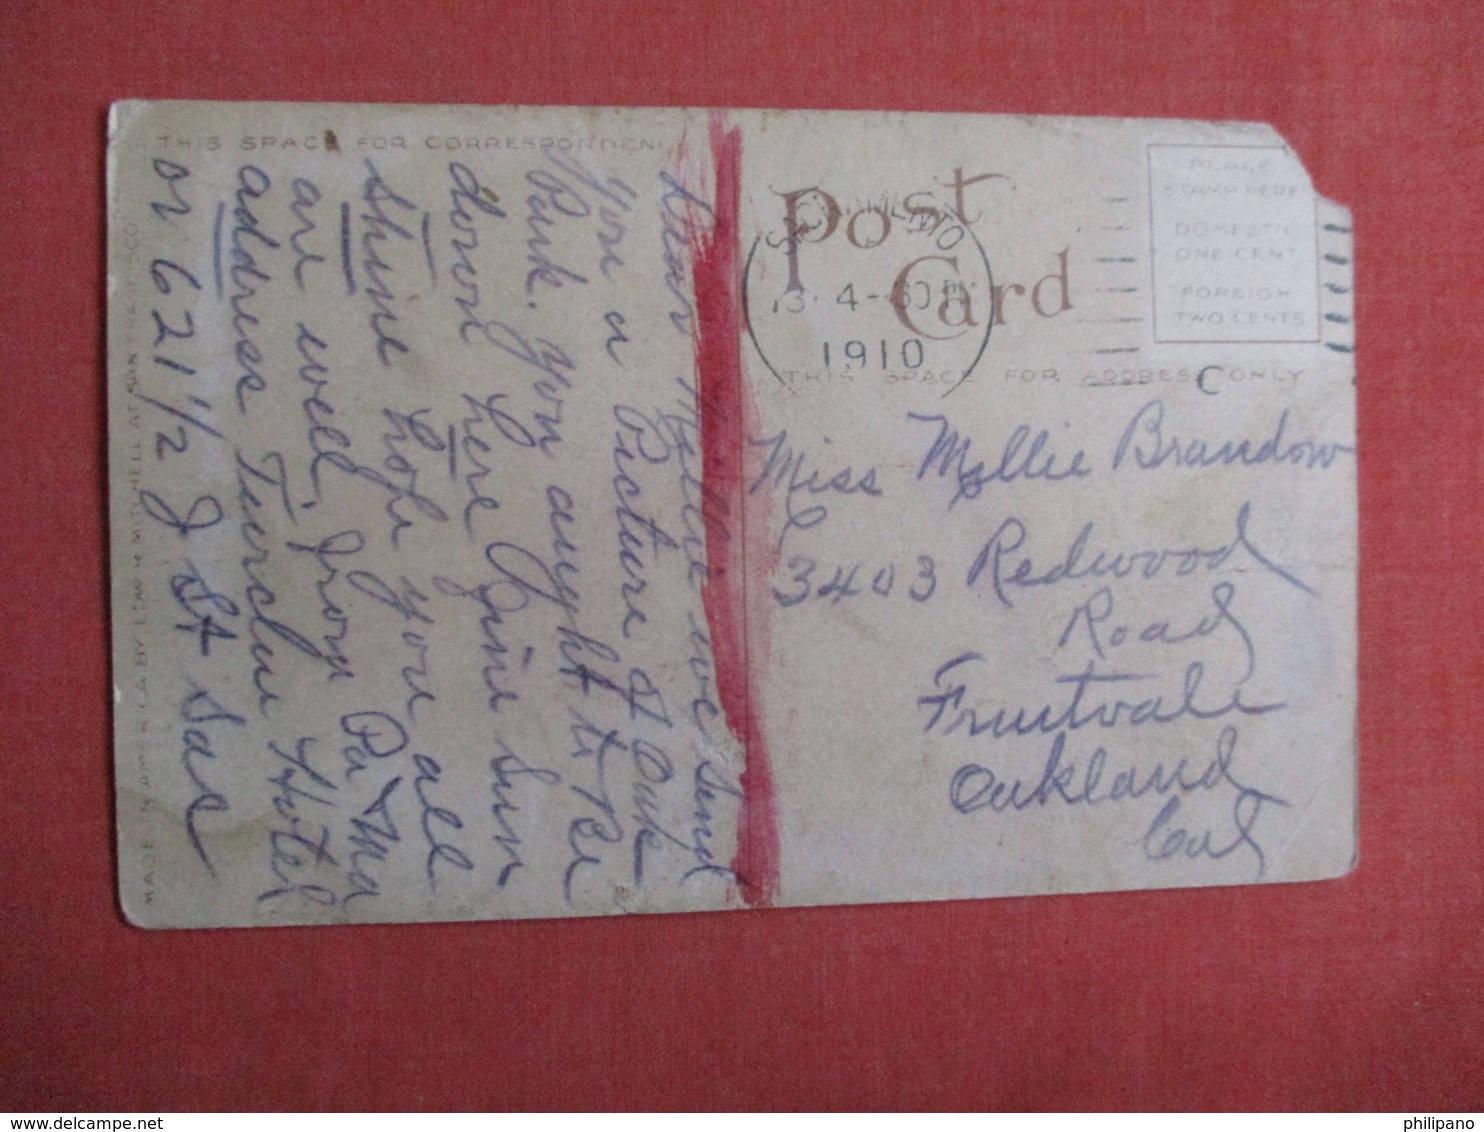 THIS SPACE FOR CORRESPONDENCE
Dear Mollie we send
you a Picture of Oak
Park. you aught to Be
down here Fine Sun
Shine hope you all
are well. From Pa & Ma
address Turclu Hotel
or 621 1/2 J St Sac
MADE IN AMERICA BY EDW. H. MITCHELL AT SAN FRANCISCO
Post
Card
SACRAMENTO
13. 4-30 PM
1910
PLACE
STAMP HERE
DOMESTIC
ONE CENT
FOREIGN
TWO CENTS
C
THIS SPACE FOR ADDRESS ONLY
Miss Mollie Brandow
3403 Redwood
Road
Fruitvale
Oakland
Cal
philipano